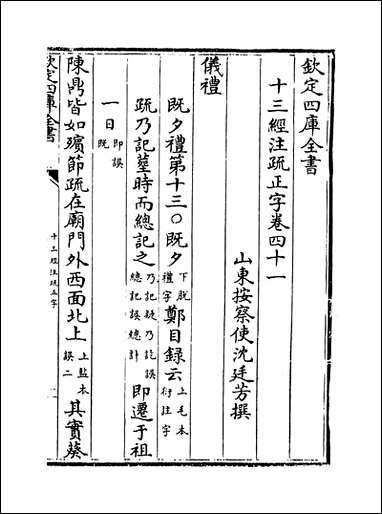 欽定四庫全書
十三經注疏正字卷四十一
山東按察使沈廷芳撰
儀禮
既夕禮第十三〇既夕下脱禮字鄭目録云上毛本衍註字
疏乃記塟時而總記之乃記疑乃説誤總記誤總計即遷于祖
一日既即誤
陳鼎皆如殯節疏在廟門外西面北上上監本誤二其實葵
欽定四庫全書
十三經注疏正字